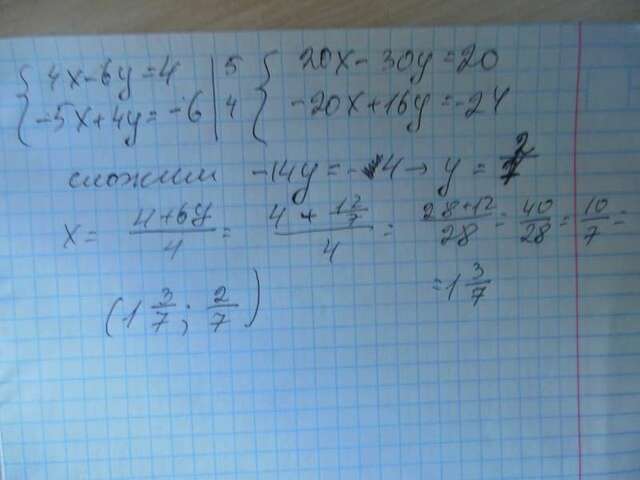 { 4x-6y=4 | 5 { 20x-30y=20
-5x+4y=-6 | 4 -20x+16y=-24
сложим -14y=-4 → y = 2/7
x = (4+6y)/4 = (4+12/7)/4 = (28+12)/28 = 40/28 = 10/7 =
= 1 3/7
(1 3/7; 2/7)